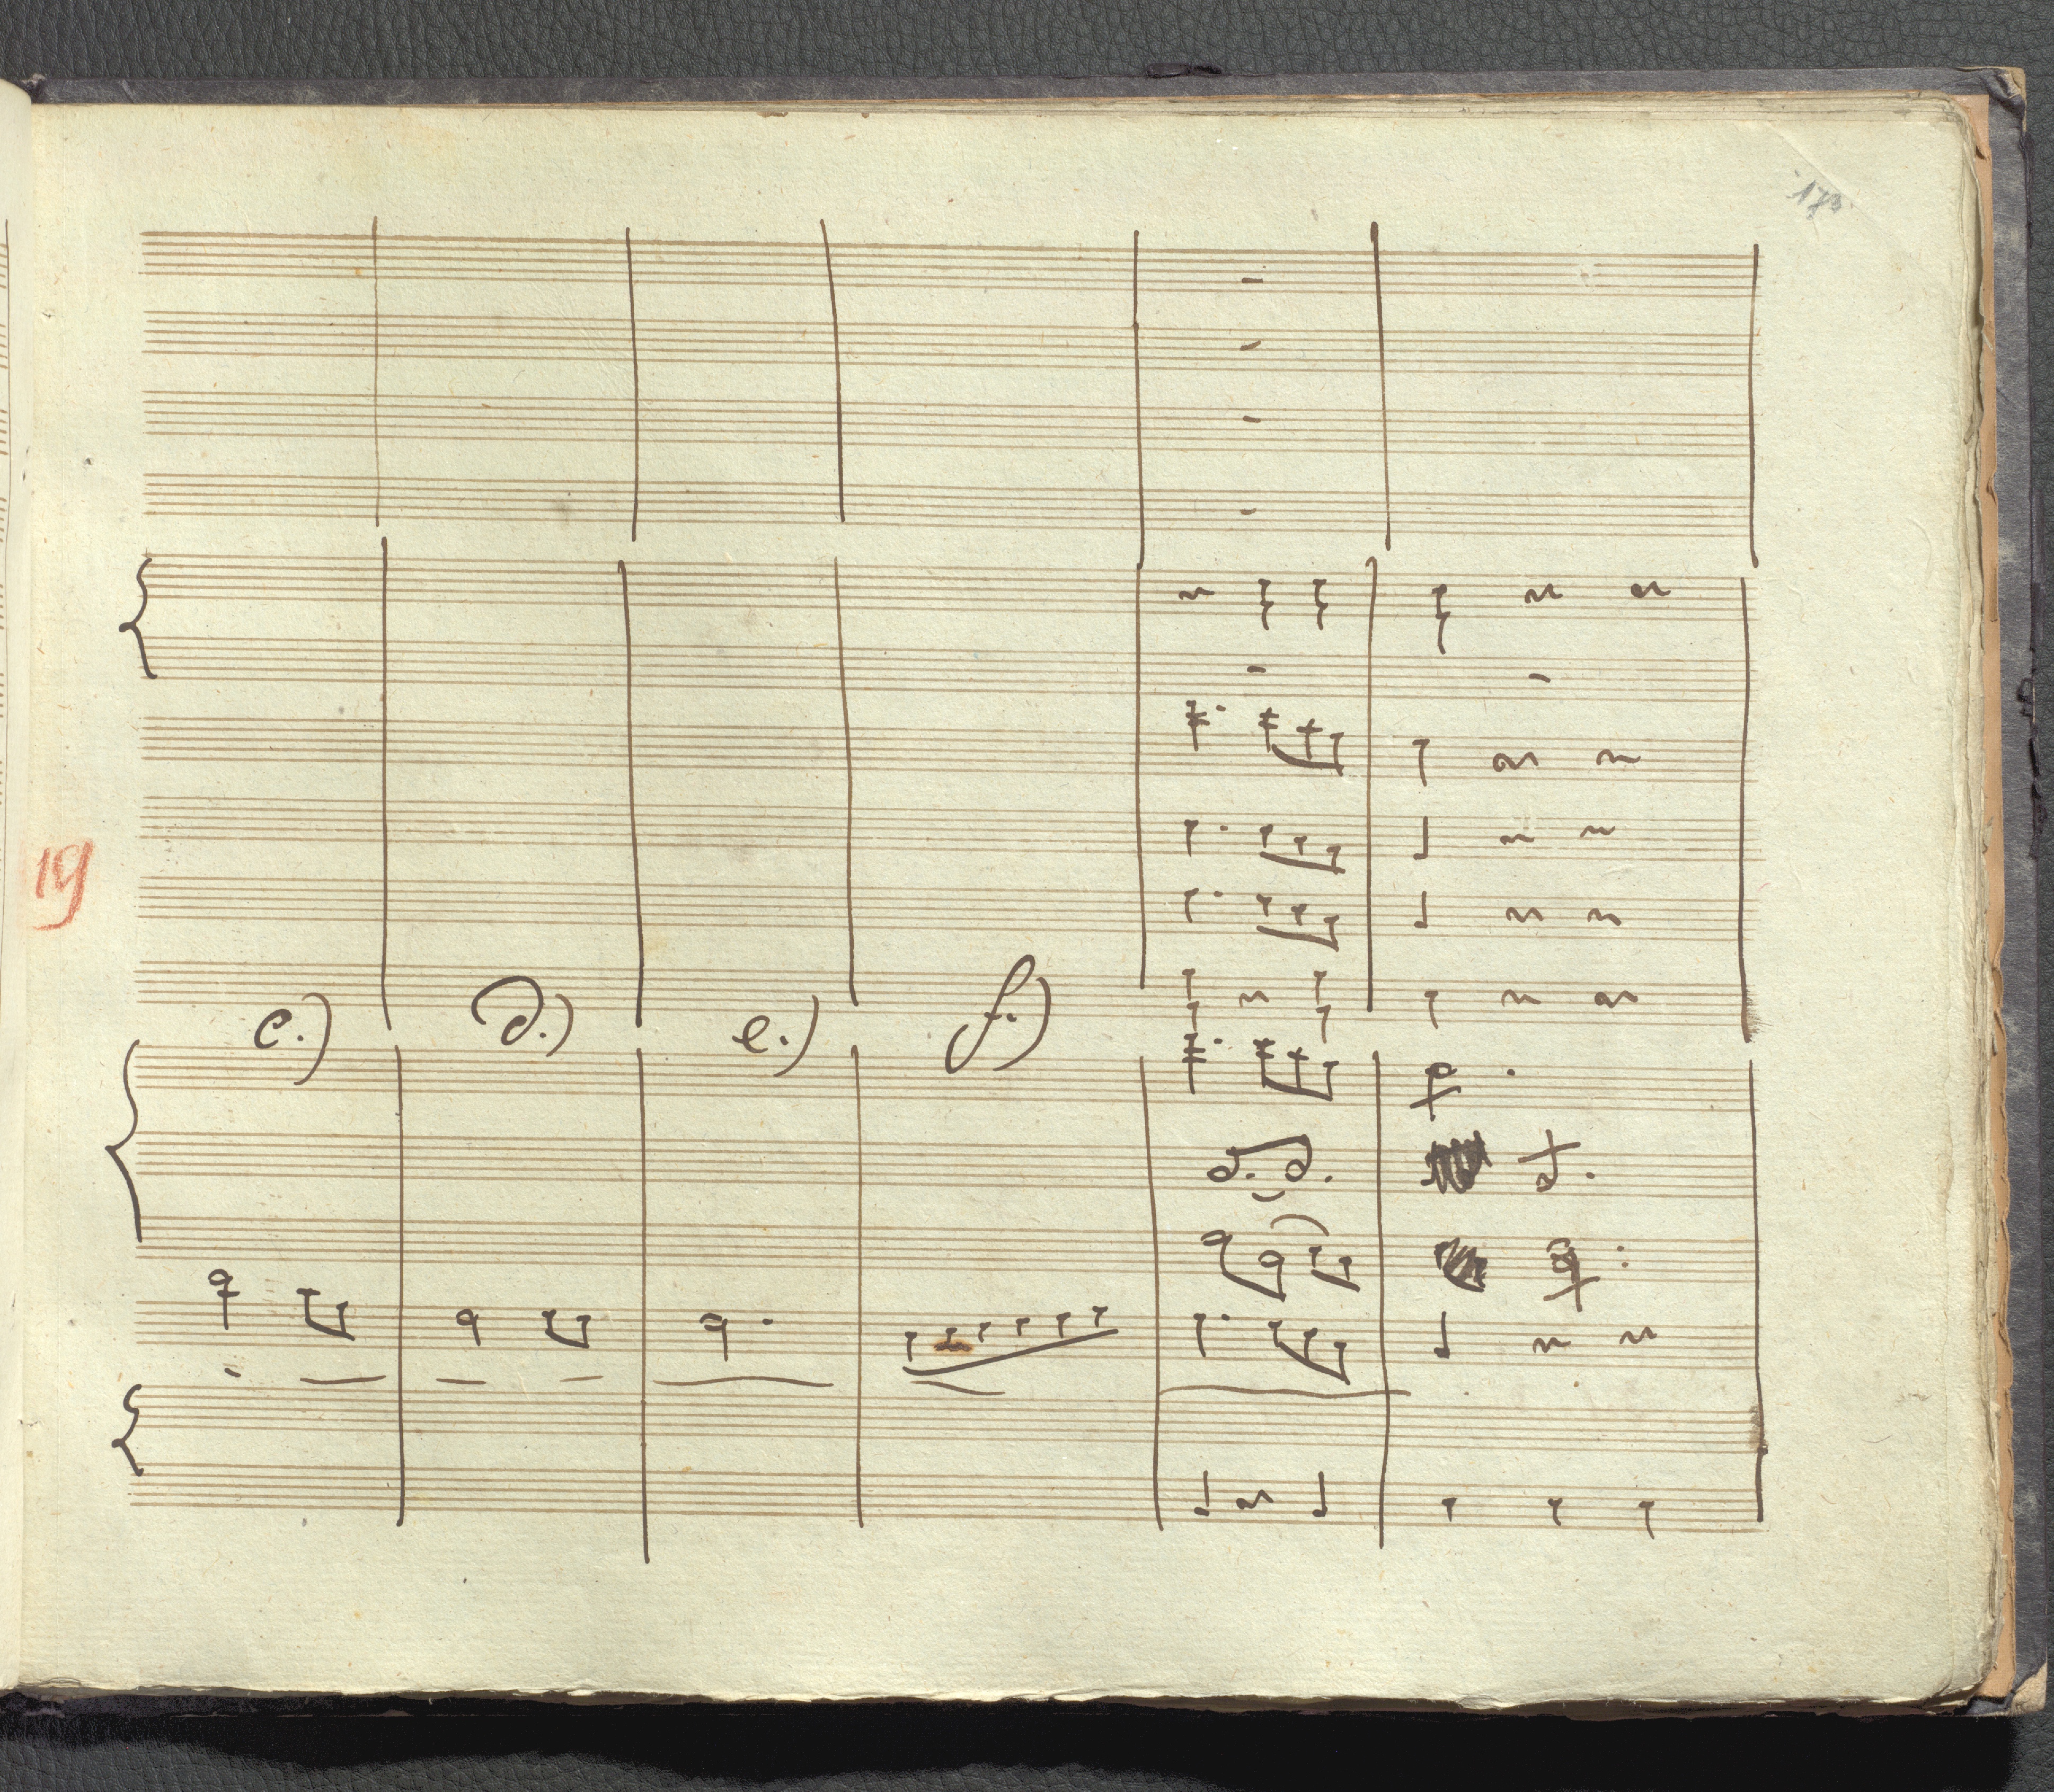 173
19
c.) d.) e.) f.)